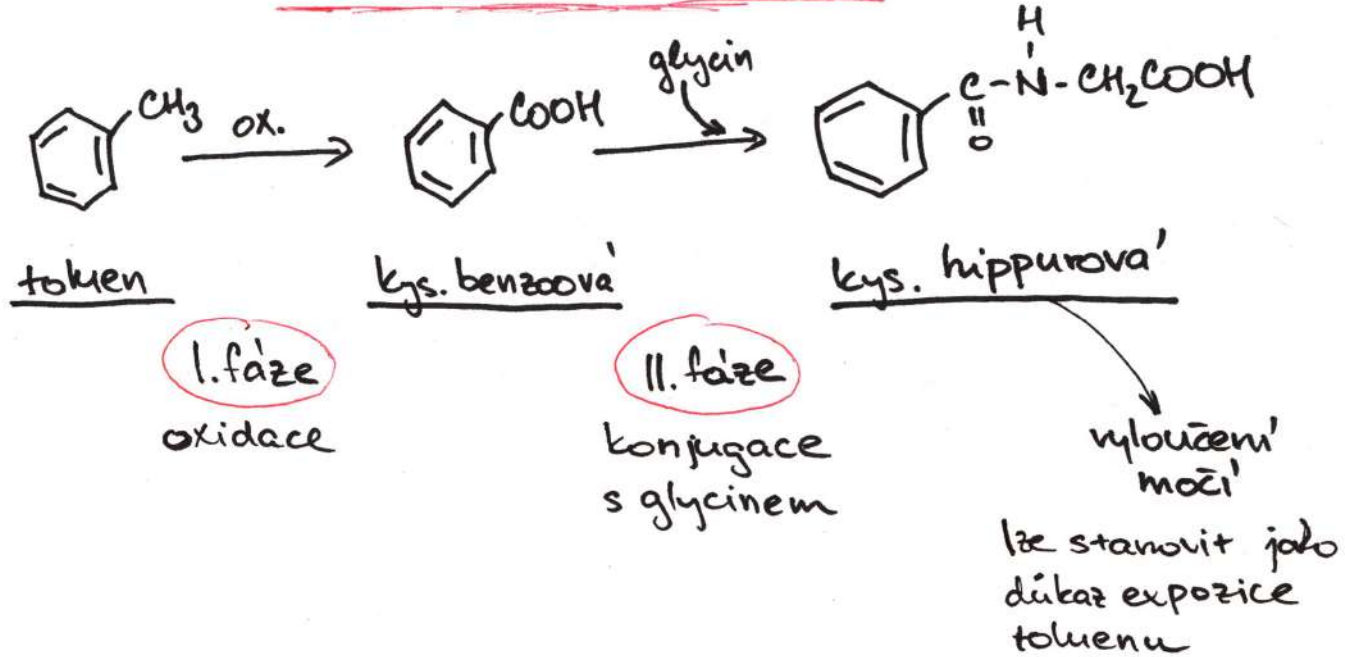 glycin
CH₃
ox.
COOH
H
C-N-CH₂COOH
O
toluen
kys. benzoová
kys. hippurová
I. fáze
oxidace
II. fáze
konjugace
s glycinem
vyloučení
močí
lze stanovit jako
důkaz expozice
toluenu